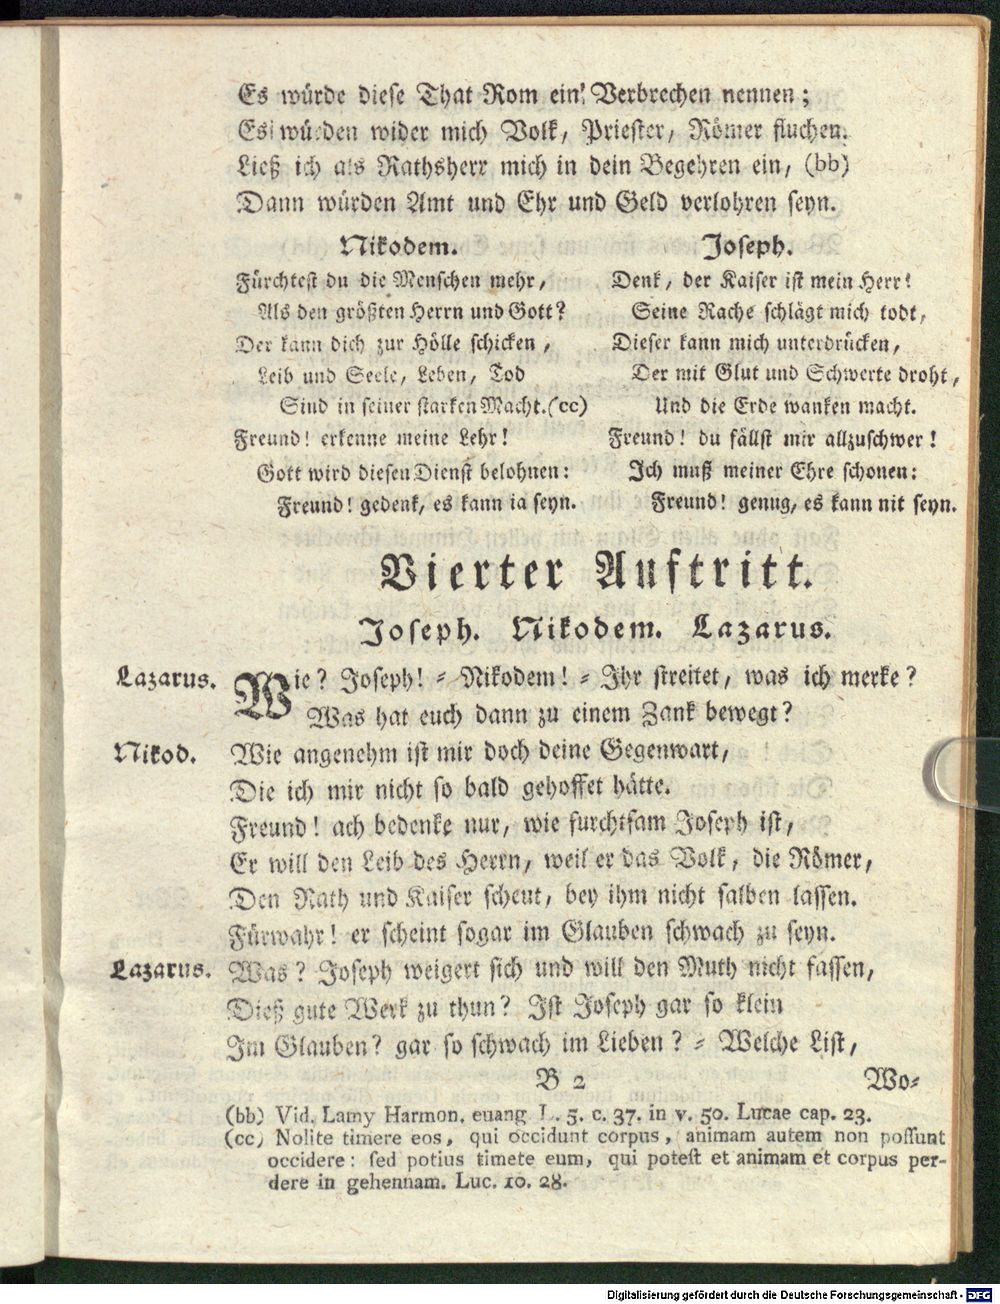 Es würde diese That Rom ein Verbrechen nennen;
Es würden wider mich Volk, Priester, Römer fluchen.
Ließ ich als Rathsherr mich in dein Begehren ein, (bb)
Dann würden Amt und Ehr und Geld verlohren seyn.
Nikodem.
Fürchtest du die Menschen mehr,
Als den größten Herrn und Gott?
Der kann dich zur Hölle schicken,
Leib und Seele, Leben, Tod
Sind in seiner starken Macht. (cc)
Freund! erkenne meine Lehr!
Gott wird diesen Dienst belohnen:
Freund! gedenk, es kann ia seyn.
Joseph.
Denk, der Kaiser ist mein Herr!
Seine Rache schlägt mich todt,
Dieser kann mich unterdrücken,
Der mit Glut und Schwerte droht,
Und die Erde wanken macht.
Freund! du fällst mir allzuschwer!
Ich muß meiner Ehre schonen:
Freund! genug, es kann nit seyn.
Vierter Auftritt.
Joseph. Nikodem. Lazarus.
Lazarus. Wie? Joseph! - Nikodem! - Ihr streitet, was ich merke?
Was hat euch dann zu einem Zank bewegt?
Nikod. Wie angenehm ist mir doch deine Gegenwart,
Die ich mir nicht so bald gehoffet hätte.
Freund! ach bedenke nur, wie furchtsam Joseph ist,
Er will den Leib des Herrn, weil er das Volk, die Römer,
Den Rath und Kaiser scheut, bey ihm nicht salben lassen.
Fürwahr! er scheint sogar im Glauben schwach zu seyn.
Lazarus. Was? Joseph weigert sich und will den Muth nicht fassen,
Dieß gute Werk zu thun? Ist Joseph gar so klein
Im Glauben? gar so schwach im Lieben? - Welche List,
B 2 Wo-
(bb) Vid. Lamy Harmon. euang. L. 5. c. 37. in v. 50. Lucae cap. 23.
(cc) Nolite timere eos, qui occidunt corpus, animam autem non possunt
occidere: sed potius timete eum, qui potest et animam et corpus per-
dere in gehennam. Luc. 10. 28.
Digitalisierung gefördert durch die Deutsche Forschungsgemeinschaft - DFG